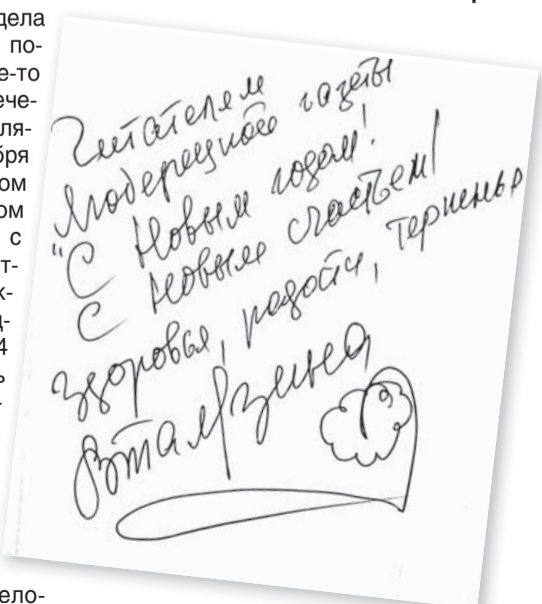 дела
по-
е-то
ече-
ля-
бря
ом
ом
с
т-
к-
д-
4
ь
ело-
Читателям
Люберецкой газеты
"С Новым годом!
С Новым счастьем!
Здоровья, радости, терпенья
ВТалызина